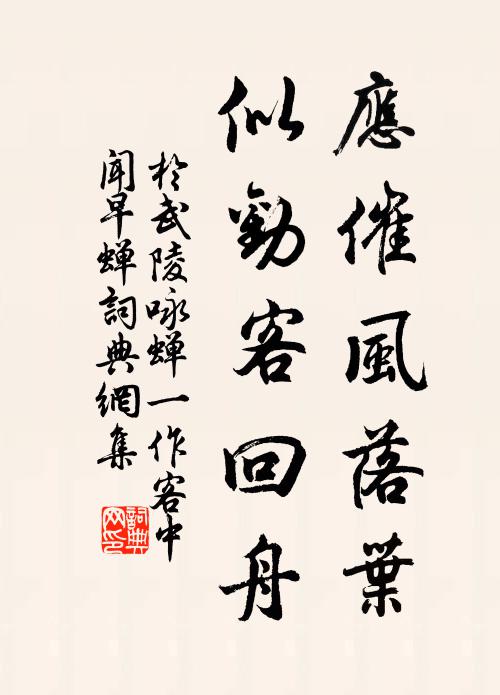 應催風落葉
似勸客回舟
於武陵咏蝉一作客中
闻早蝉詞典網集
詞典
网印